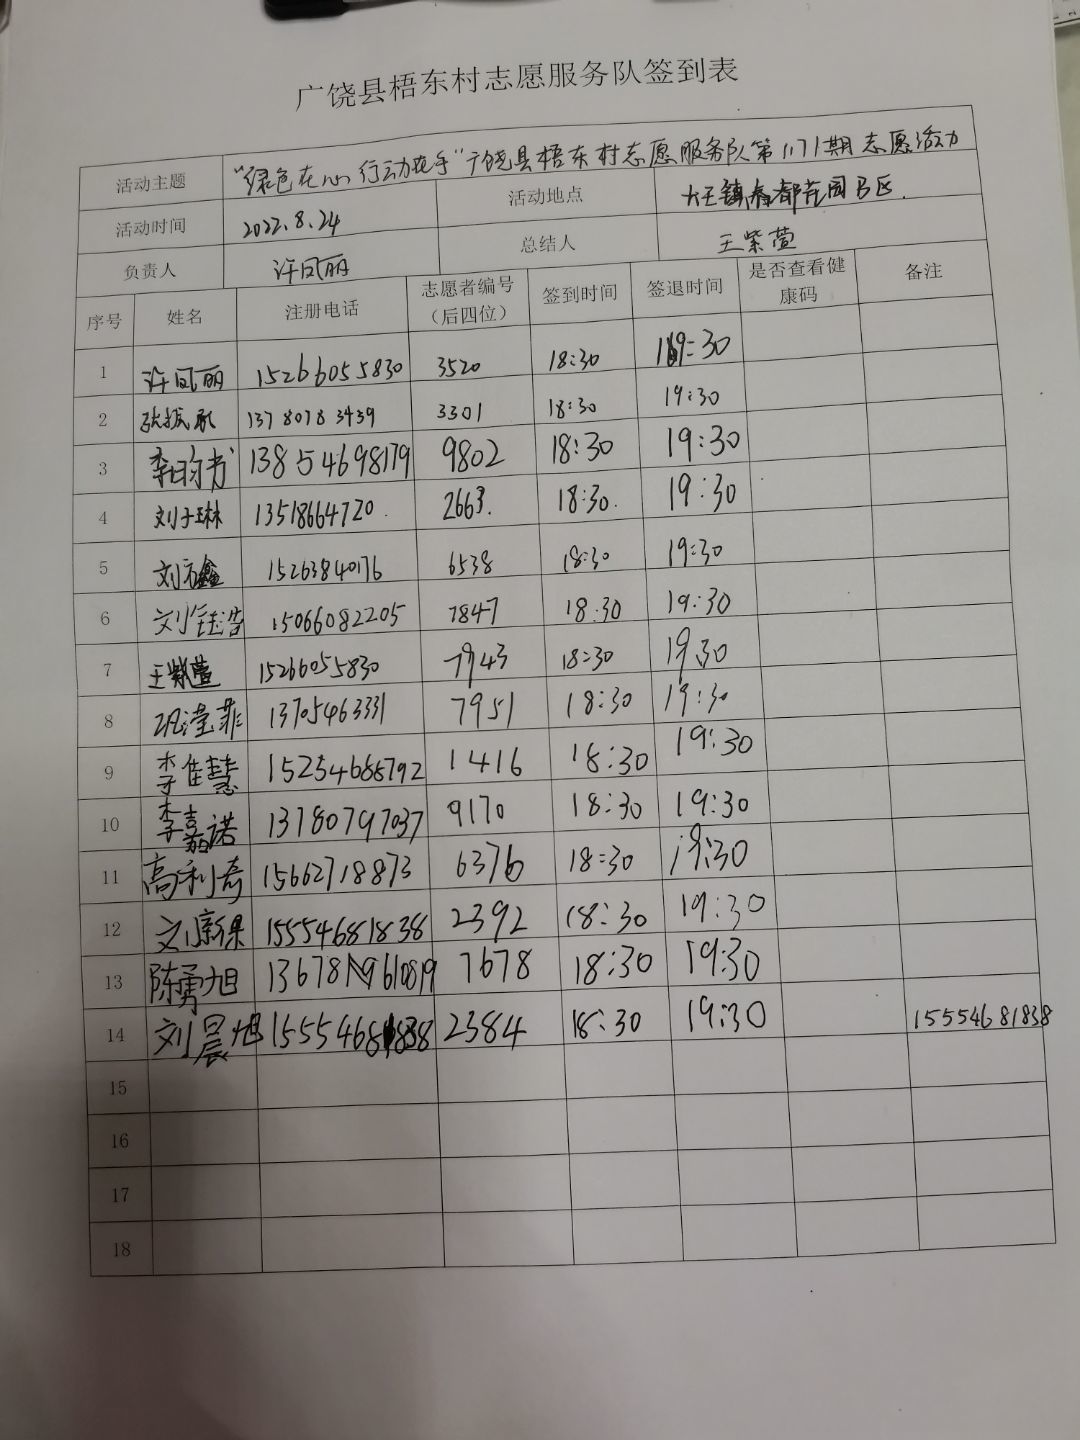 广饶县梧东村志愿服务队签到表
活动主题 "绿色在心 行动在手"广饶县梧东村志愿服务队第1171期志愿活动
活动时间 2022.8.24 活动地点 大王镇春都花园B区.
负责人 许凤丽 总结人 王紫萱
序号 姓名 注册电话 志愿者编号（后四位） 签到时间 签退时间 是否查看健康码 备注
1 许凤丽 15266055830 3520 18:30 19:30
2 137 8078 3439 3301 18:30 19:30
3 李昀书 13854698179 9802 18:30 19:30
4 刘子琳 13518664720. 2663. 18:30. 19:30
5 刘方鑫 15263840176 6538 18:30 19:30
6 刘钰浩 15066082205 7847 18:30 19:30
7 王紫萱 15266055830 7943 18:30 19:30
8 巩滢菲 13705463331 7951 18:30 19:30
9 李佳慧 15254688792 1416 18:30 19:30
10 李嘉诺 13780797037 9170 18:30 19:30
11 高利奇 15662718873 6376 18:30 19:30
12 15554681838 2392 18:30 19:30
13 陈勇旭 7678 18:30 19:30
14 刘晨旭 15554681838 2384 18:30 19:30 15554681838
15
16
17
18